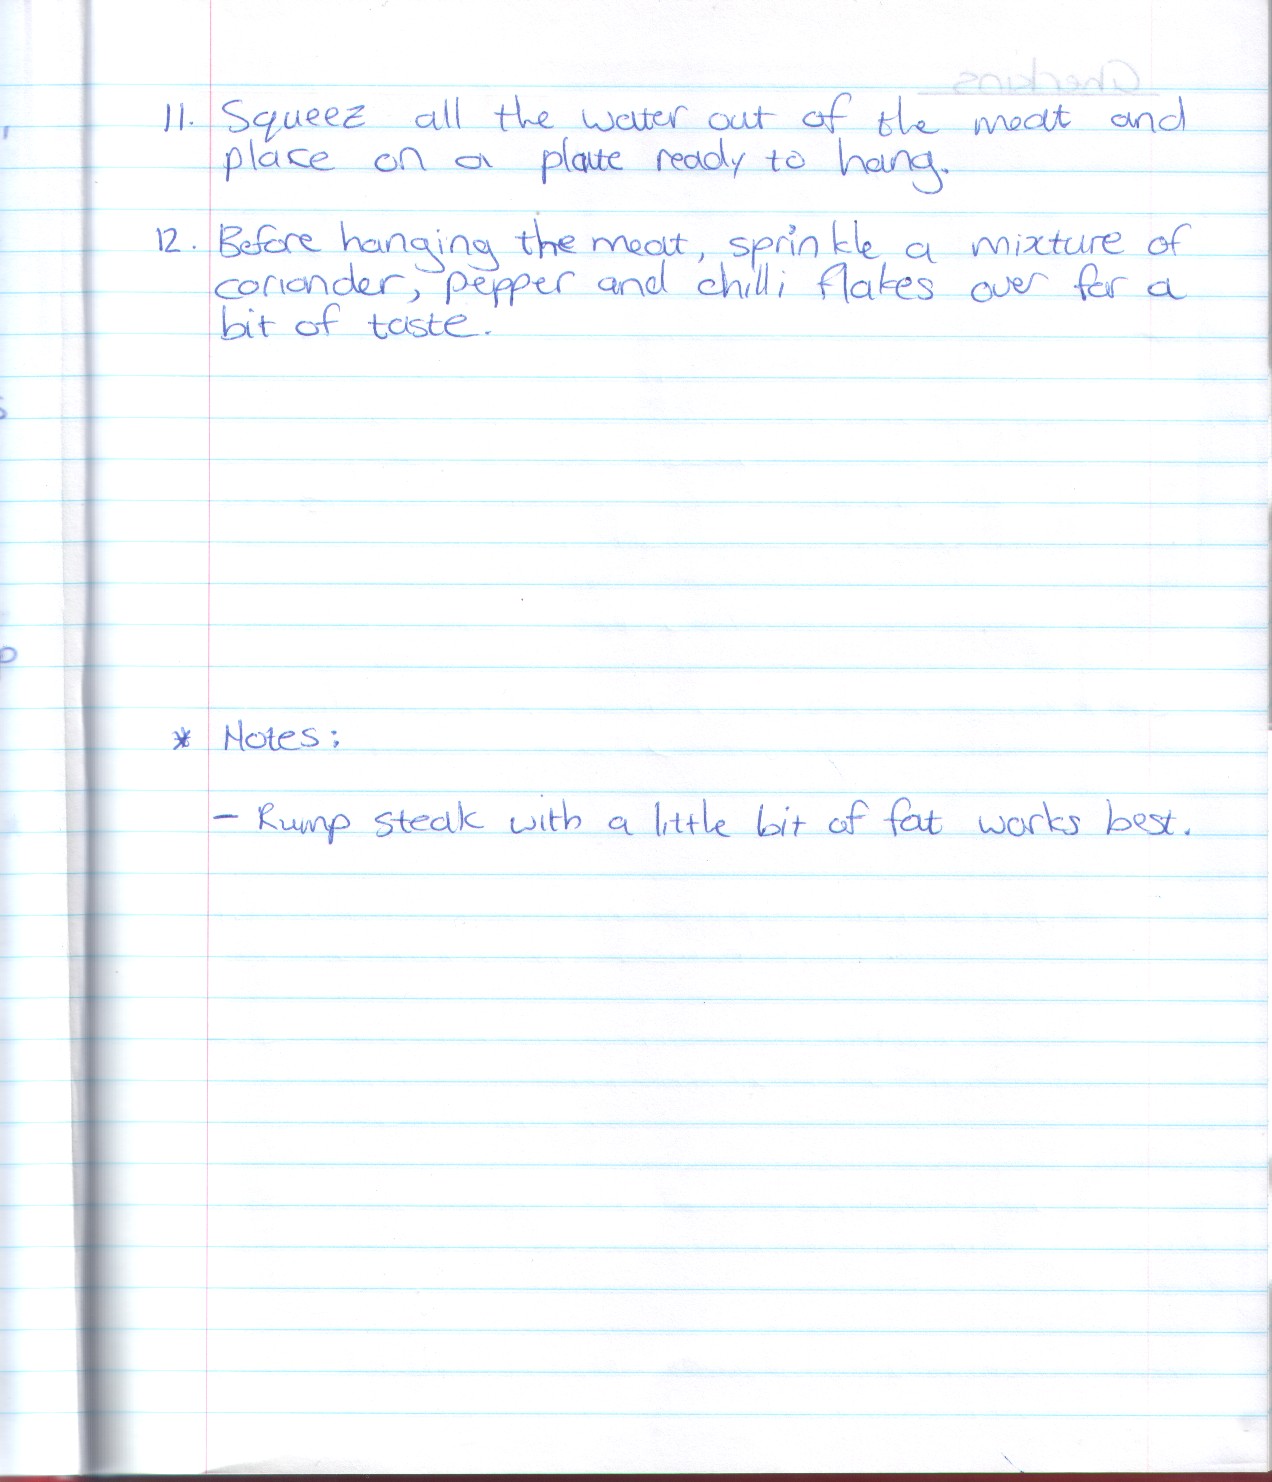 11. Squeez all the water out of the meat and
place on a plate ready to hang.
12. Before hanging the meat, sprinkle a mixture of
coriander, pepper and chilli flakes over for a
bit of taste.
* Notes:
- Rump steak with a little bit of fat works best.